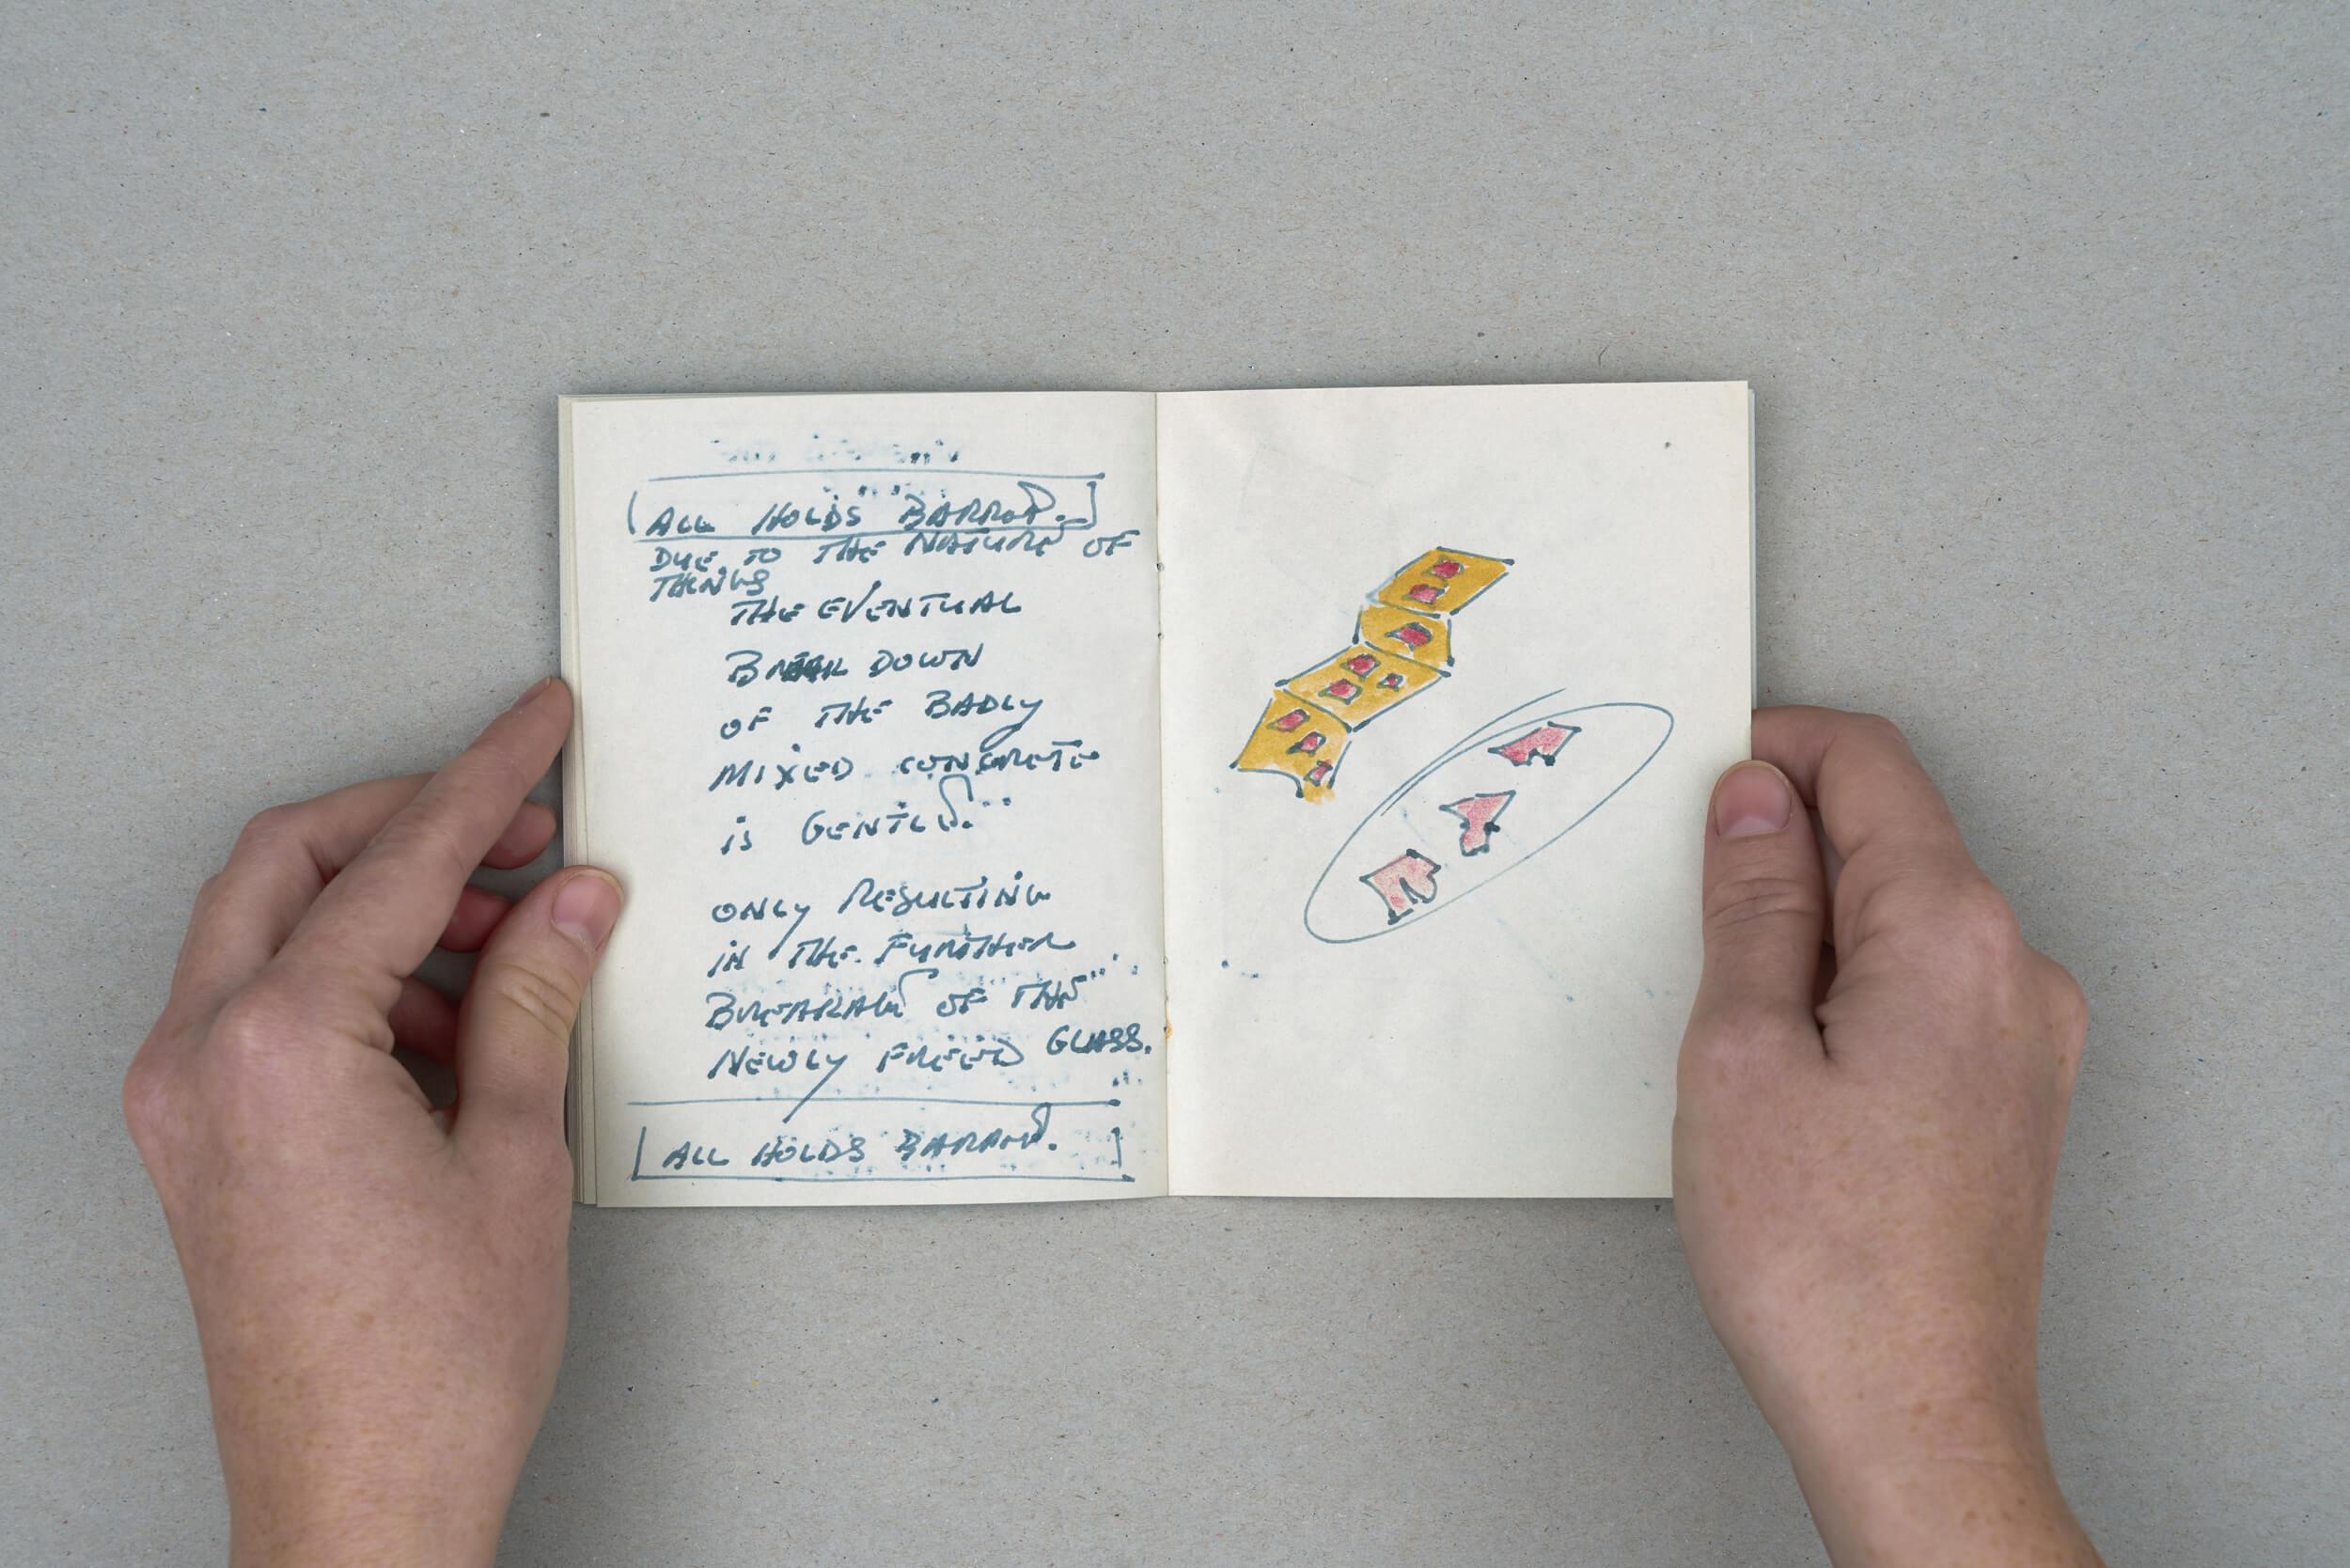 [ALL HOLDS BARRED.]
DUE TO THE NATURE OF
THINGS
THE EVENTUAL
BREAK DOWN
OF THE BADLY
MIXED CONCRETE
IS GENTLE.
ONLY RESULTING
IN THE FURTHER
BREAKAGE OF THE
NEWLY FREED GLASS.
[ALL HOLDS BARRED.]